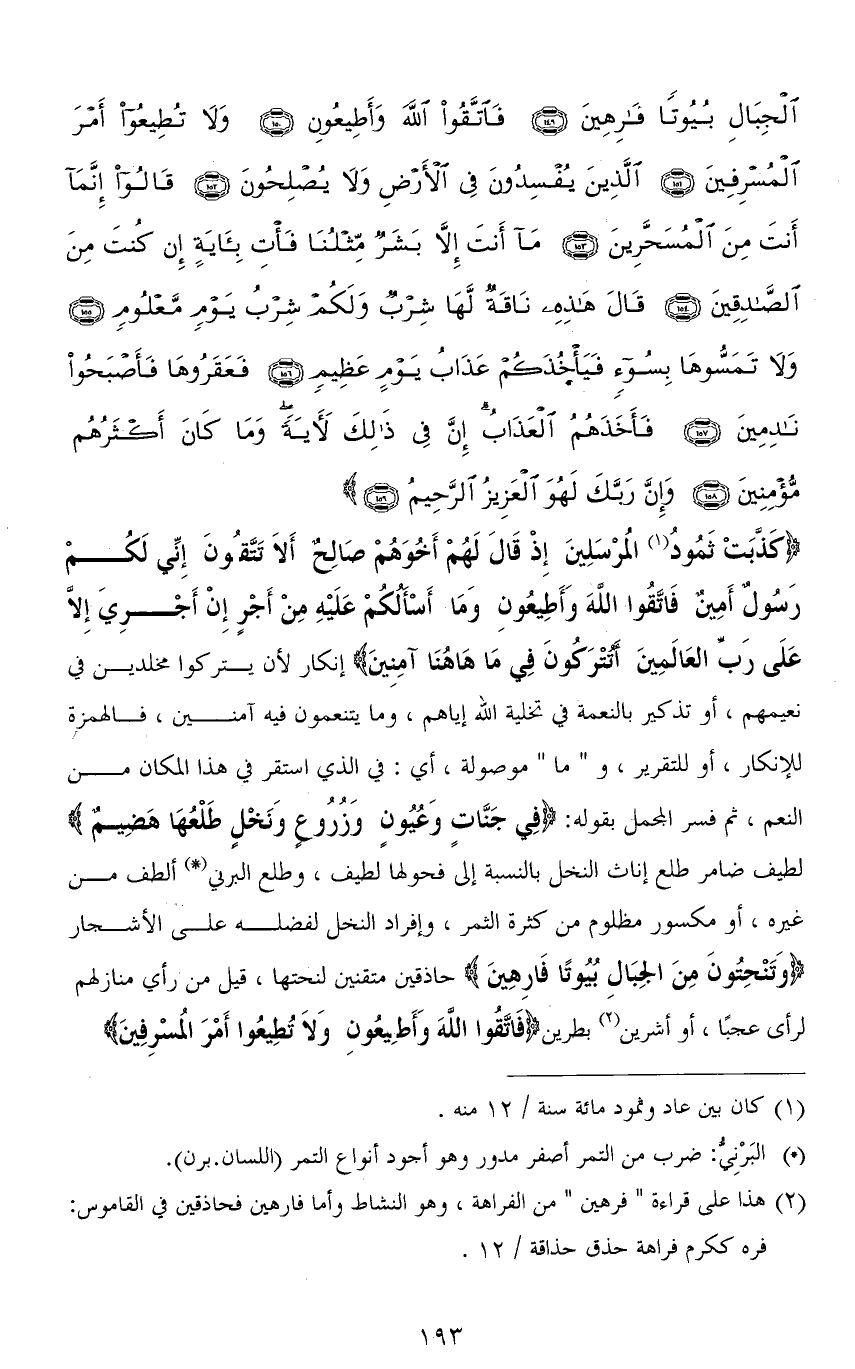 ٱلْجِبَالِ بُيُوتًا فَـٰرِهِينَ ١٤٩ فَٱتَّقُوا۟ ٱللَّهَ وَأَطِيعُونِ ١٥٠ وَلَا تُطِيعُوٓا۟ أَمْرَ
ٱلْمُسْرِفِينَ ١٥١ ٱلَّذِينَ يُفْسِدُونَ فِى ٱلْأَرْضِ وَلَا يُصْلِحُونَ ١٥٢ قَالُوٓا۟ إِنَّمَآ
أَنتَ مِنَ ٱلْمُسَحَّرِينَ ١٥٣ مَآ أَنتَ إِلَّا بَشَرٌ مِّثْلُنَا فَأْتِ بِـَٔايَةٍ إِن كُنتَ مِنَ
ٱلصَّـٰدِقِينَ ١٥٤ قَالَ هَـٰذِهِۦ نَاقَةٌ لَّهَا شِرْبٌ وَلَكُمْ شِرْبُ يَوْمٍ مَّعْلُومٍ ١٥٥
وَلَا تَمَسُّوهَا بِسُوٓءٍ فَيَأْخُذَكُمْ عَذَابُ يَوْمٍ عَظِيمٍ ١٥٦ فَعَقَرُوهَا فَأَصْبَحُوا۟
نَـٰدِمِينَ ١٥٧ فَأَخَذَهُمُ ٱلْعَذَابُ ۗ إِنَّ فِى ذَٰلِكَ لَـَٔايَةً ۖ وَمَا كَانَ أَكْثَرُهُم
مُّؤْمِنِينَ ١٥٨ وَإِنَّ رَبَّكَ لَهُوَ ٱلْعَزِيزُ ٱلرَّحِيمُ ١٥٩ ﴾
﴿كَذَّبَتْ ثَمُودُ(١) الْمُرْسَلِينَ إِذْ قَالَ لَهُمْ أَخُوَهُمْ صَالِحٌ أَلاَ تَتَّقُونَ إِنِّي لَكُمْ
رَسُولٌ أَمِينٌ فَاتَّقُوا اللَّهَ وَأَطِيعُونِ وَمَا أَسْأَلُكُمْ عَلَيْهِ مِنْ أَجْرٍ إِنْ أَجْرِيَ إِلاَّ
عَلَى رَبِّ العَالَمِينَ أَتُتْرَكُونَ فِي مَا هَاهُنَا آمِنِينَ﴾ إنكار لأن يتركوا مخلدين في
نعيمهم ، أو تذكير بالنعمة في تخلية الله إياهم ، وما يتنعمون فيه آمنين ، فالهمزة
للإنكار ، أو للتقرير ، و " ما " موصولة ، أي : في الذي استقر في هذا المكان من
النعم ، ثم فسر المجمل بقوله: ﴿فِي جَنَّاتٍ وَعُيُونٍ وَزُرُوعٍ وَنَخْلٍ طَلْعُهَا هَضِيمٌ ﴾
لطيف ضامر طلع إناث النخل بالنسبة إلى فحولها لطيف ، وطلع البرني(*) ألطف من
غيره ، أو مكسور مظلوم من كثرة الثمر ، وإفراد النخل لفضله على الأشجار
﴿وَتَنْحِتُونَ مِنَ الجِبَالِ بُيُوتًا فَارِهِينَ ﴾ حاذقين متقنين لنحتها ، قيل من رأي منازلهم
لرأى عجبًا ، أو أشرين(٢) بطرين﴿فَاتَّقُوا اللَّهَ وَأَطِيعُونِ وَلاَ تُطِيعُوا أَمْرَ الْمُسْرِفِينَ﴾
(١) كان بين عاد وثمود مائة سنة / ١٢ منه .
(*) البَرْنِيُّ: ضرب من التمر أصفر مدور وهو أجود أنواع التمر (اللسان.برن).
(٢) هذا على قراءة " فرهين " من الفراهة ، وهو النشاط وأما فارهين فحاذقين في القاموس:
فره ككرم فراهة حذق حذاقة / ١٢ .
١٩٣